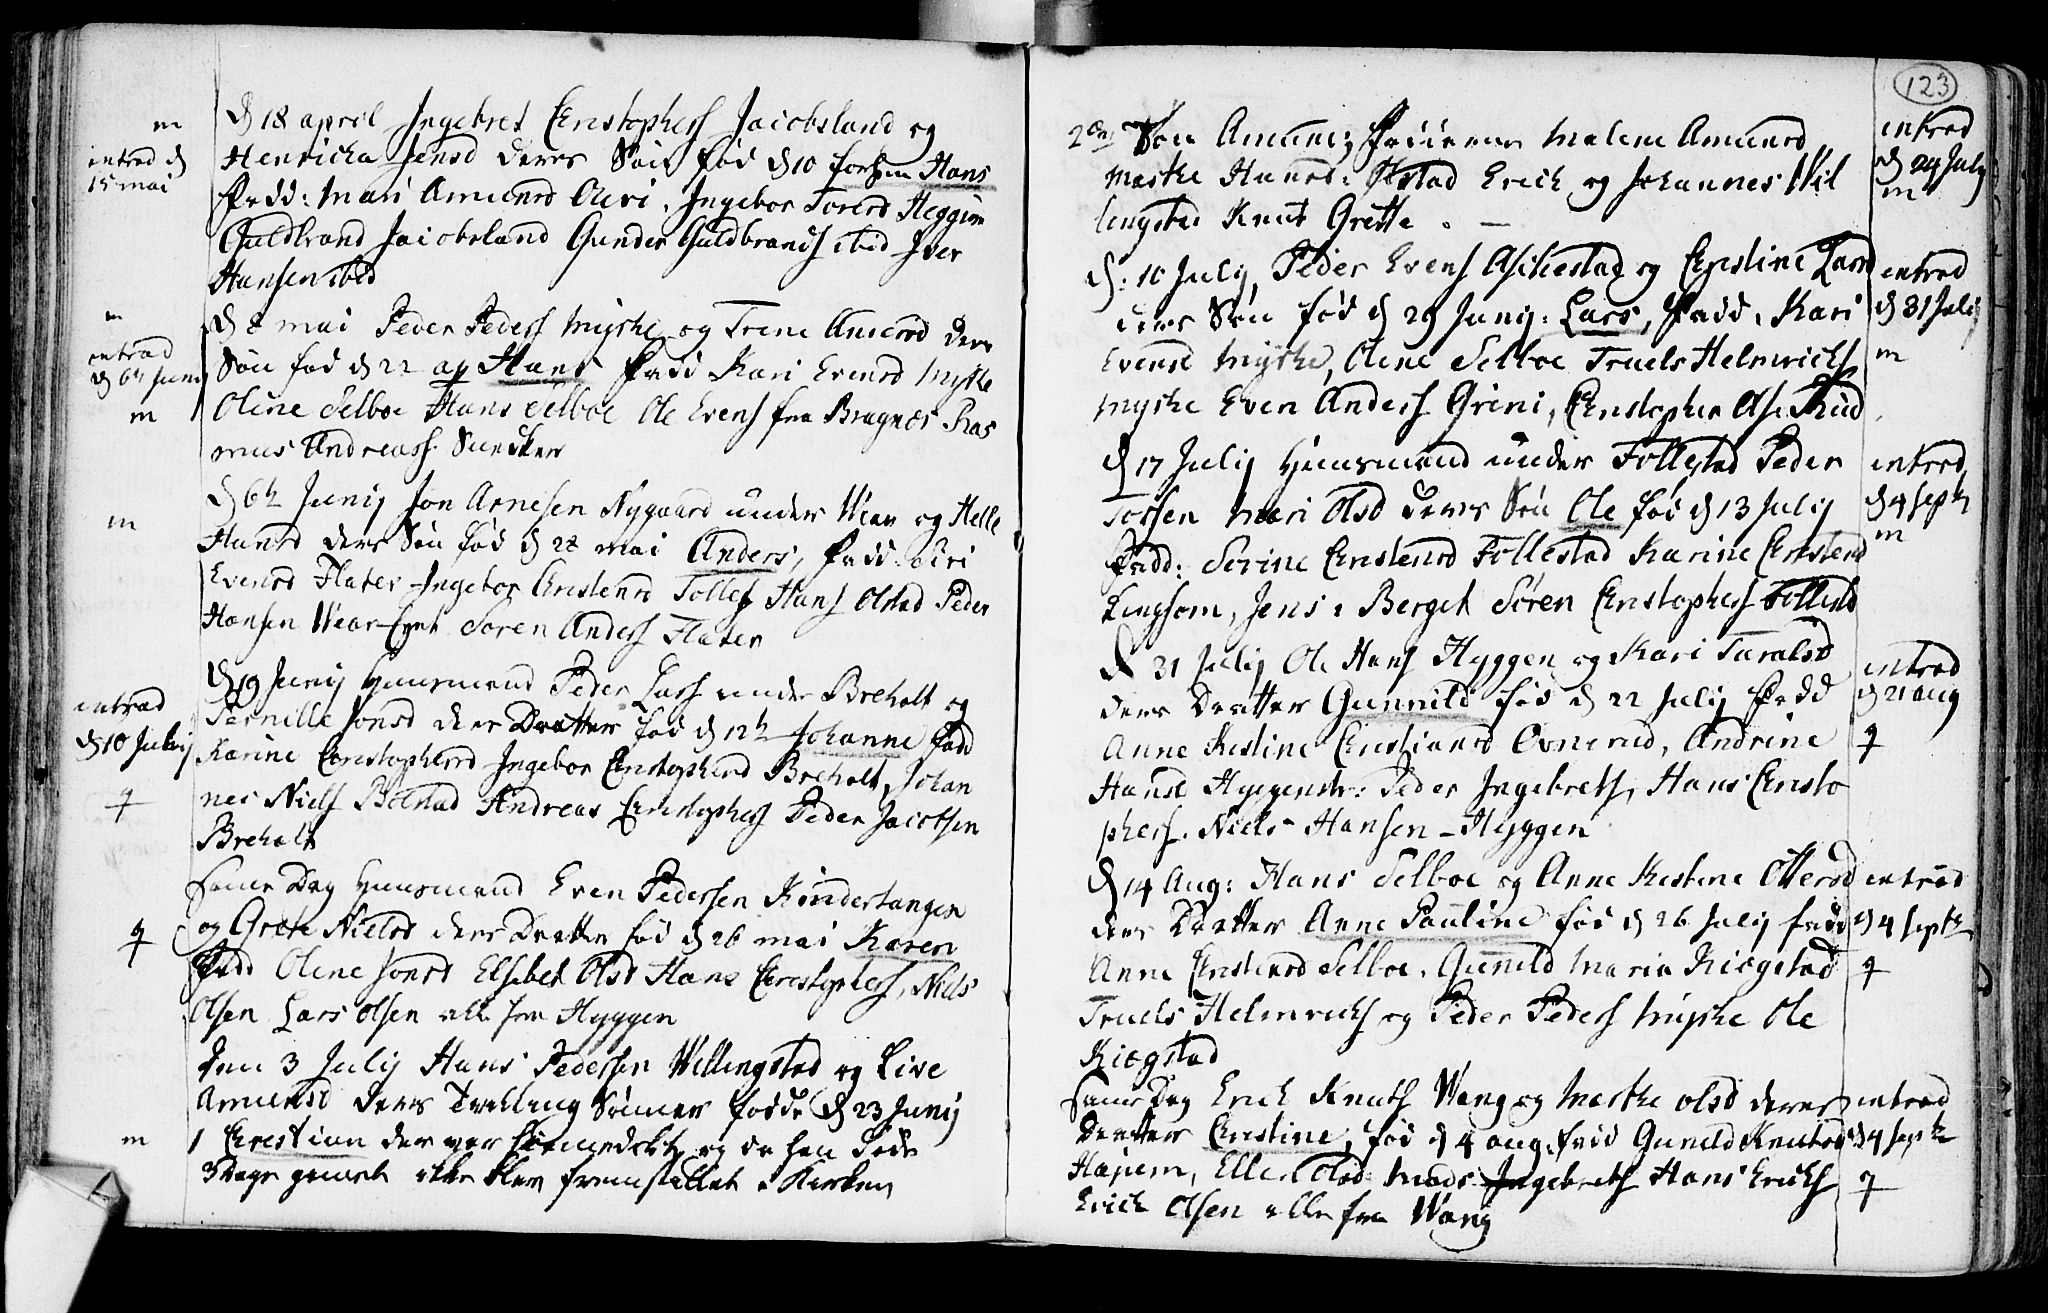 m
introd d
15 mai
d 18 april Ingebret Christophers Jacobsland og
Henricha Jensd deres Søn fød d 10 Hans
Fadd: Mari Amunsd Ingebor Torersd Heggum
Guldbrand Jacobsland Gunder Guldbrands ibid Iver
Hansen ibid
m
introd
d 6th Junj
m
d mai Peder Peders Myhre og Trine Amersd deres
Søn fød d 22 ap Hans Fadd Kari Evensd Myhre
Oline Selboe Hans Selboe Ole Evens fra Bragnes Ras
mus Andreass
m
d 6th Junij Jon Arnesen Nygaard under Wear og Helle
Hansd deres Søn fød d 28 mai Anders, Fadd Siri
Evensd Flater Ingebor Christensd Hans Olstad Peder
Hansen Wear Soren Anders Flater
introd
d 10 Julij
q
d 19 Junij Huusmand Peder Lars under Breholt og
Pernille Jonsd deres Dratter fød d 12th Johanne Fadd
Karine Christophersd Ingebor Christophersd Breholt, Johan
nes Niels Bolstad Andreas Christophers Peder Jacobsen
Breholt
q
samme Dag Huusmand Even Pedersen Kindertangen
og Grete Nielsd deres Dratter fød d 26 mai Karen
Fadd Olene Jonsd Elsebet Olsd Hans Christophers, Niels
Olsen Lars Olsen alle fra Hyggen
m
den 3 Julij Hans Pedersen Willingstad og Live
Amunsd deres Tvilling Sønner fødde d 23 Junij
1 Christian der var hiemedøbt og da han døde
3 Dage gamel ikke blev fremstillet i Kirken
123
2den Søn Amun; Malene Amunsd
Marthe Hansd: Erich og Johannes Wil
lingstad Knut Grette. —
introd
d 24 July
m
d: 10 Julij Peder Evens Askestad og Christine Larsd
deres Søn fød d 29 Junij: Lars, Fadd. Kari
Evensd Myhre, Olene Selboe Truels Helmrichs
Myhre Even Anders Grini, Christopher Ols Rud
introd
d 31 Julij
m
d 17 Julij Huusmand under Follestad Peder
Torsen Mari Olsd deres Søn Ole fød d 13 Julij
Fadd: Serine Christensd Follestad Karine Christensd
Lingsom, Jens i Berget Søren Christophers Follestad
introd
d 4 septb
m
d 31 Julij Ole Hans Hyggen og Kari Taralsd
deres Dratter Gunnild fød d 22 Julij Fadd
Anne Kestine Christiansd Ovnerud, Andrine
Hansd Hyggenstr: Peder Ingebrets, Hans Christo
phers. Niels Hansen Hyggen
introd
d 21 aug
q
d 14 Aug: Hans Selboe og Anne Kestine Ottersd
deres Dratter Anne Pauline fød d 26 Julij fadd
Anne Christiansd Selboe, Gunild Maria Kiøgstad
Truels Helmrichs og Peder Peders Myhre Ole
Kiøgstad
introd
d 4 septb
q
samme Dag Erich Knuts Wang og Marthe olsd deres
Dratter Christine, fød d 4 aug. fadd Gunild Knutsd
Hajum, Ellen Olsd Mads Ingebrets Hans Erichs
Erich Olsen alle fra Wang
introd
d 4 septb
q